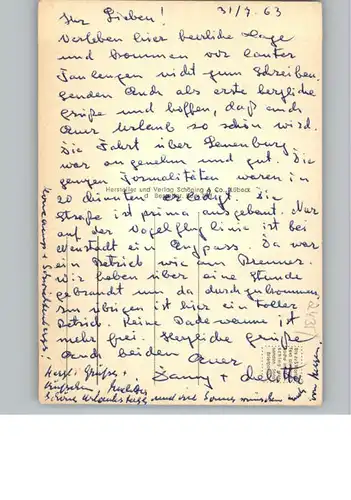 Ihr Lieben! 31/7. 63
Verleben hier herrliche Tage
und kommen vor lauter
Faulenzen nicht zum Schreiben.
Senden Euch als erste herzliche
Grüße und hoffen, daß auch
Euer Urlaub so schön wird.
Die Fahrt über Lauenburg
war angenehm und gut. Die
ganzen Formalitäten waren in
Hersteller und Verlag Schöning & Co., Lübeck
20 Minuten erledigt. Die
Straße ist prima ausgebaut. Nur
auf der Vogelfluglinie ist bei
Neustadt ein Engpass. Da war
ein Betrieb wie am Brenner.
Wir haben über eine Stunde
gebraucht um da durchzukommen.
Im übrigen ist hier ein toller
Betrieb. Keine Badewanne ist
mehr frei. Herzliche Grüße
Euch beiden Euer
Fanny +
Herzl. Grüße +
schöne Urlaubstage und viel Sonne wünschen